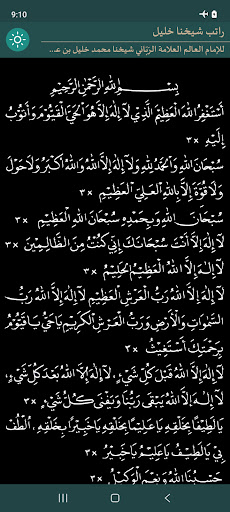 9:10
راتب شيخنا خليل
للإمام العالم العلامة الرباني شيخنا محمد خليل بن عـ...
بِسْمِ اللهِ الرَّحْمٰنِ الرَّحِيْمِ
أَسْتَغْفِرُ اللهَ الْعَظِيْمَ الَّذِي لَآ إِلٰهَ إِلَّا هُوَ الْحَيُّ الْقَيُّوْمُ وَأَتُوْبُ
إِلَيْهِ ×٣
سُبْحَانَ اللهِ وَالْحَمْدُ لِلهِ وَلَآ إِلٰهَ إِلَّا اللهُ وَاللهُ أَكْبَرُ وَلَا حَوْلَ
وَلَا قُوَّةَ إِلَّا بِاللهِ الْعَلِيِّ الْعَظِيْمِ ×٣
سُبْحَانَ اللهِ وَبِحَمْدِهِ سُبْحَانَ اللهِ الْعَظِيْمِ ×٣
لَآ إِلٰهَ إِلَّا أَنْتَ سُبْحَانَكَ إِنِّي كُنْتُ مِنَ الظَّالِمِيْنَ ×٣
لَآ إِلٰهَ إِلَّا اللهُ الْعَظِيْمُ الْحَلِيْمُ
لَآ إِلٰهَ إِلَّا اللهُ رَبُّ الْعَرْشِ الْعَظِيْمِ لَآ إِلٰهَ إِلَّا اللهُ رَبُّ
السَّمٰوَاتِ وَالْأَرْضِ وَرَبُّ الْعَرْشِ الْكَرِيْمِ يَا حَيُّ يَا قَيُّوْمُ
بِرَحْمَتِكَ أَسْتَغِيْثُ ×٣
لَآ إِلٰهَ إِلَّا اللهُ قَبْلَ كُلِّ شَيْءٍ، لَآ إِلٰهَ إِلَّا اللهُ بَعْدَ كُلِّ شَيْءٍ،
لَآ إِلٰهَ إِلَّا اللهُ يَبْقَى رَبُّنَا وَيَفْنَى كُلُّ شَيْءٍ ×٣
يَا لَطِيْفًا بِخَلْقِهِ يَا عَلِيْمًا بِخَلْقِهِ يَا خَبِيْرًا بِخَلْقِهِ، اُلْطُفْ
بِي يَا لَطِيْفُ يَا عَلِيْمُ يَا خَبِيْرُ ×٣
حَسْبُنَا اللهُ وَنِعْمَ الْوَكِيْلُ ×٣